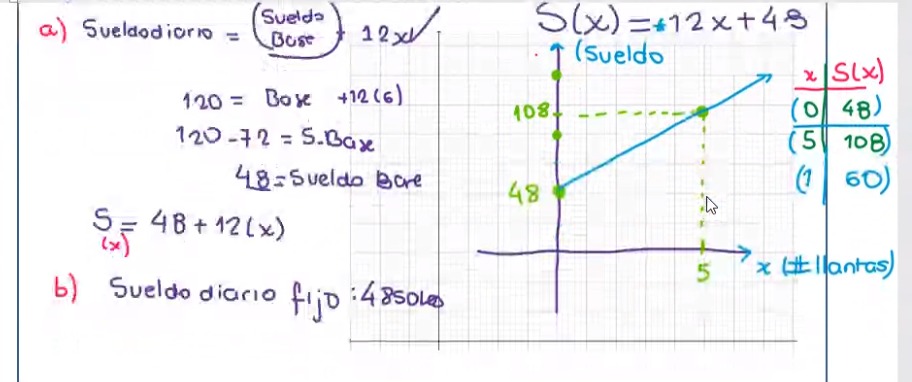 a) Sueldodiario = (Sueldo Base) + 12x
120 = Base +12(6)
120-72 = S.Base
48=Sueldo Base
S(x) = 48+12(x)
b) Sueldo diario fijo:48soles
S(x)=+12x+48
(Sueldo
108
48
5
x (#llantas)
x S(x)
(0 48)
(5 108)
(1 60)